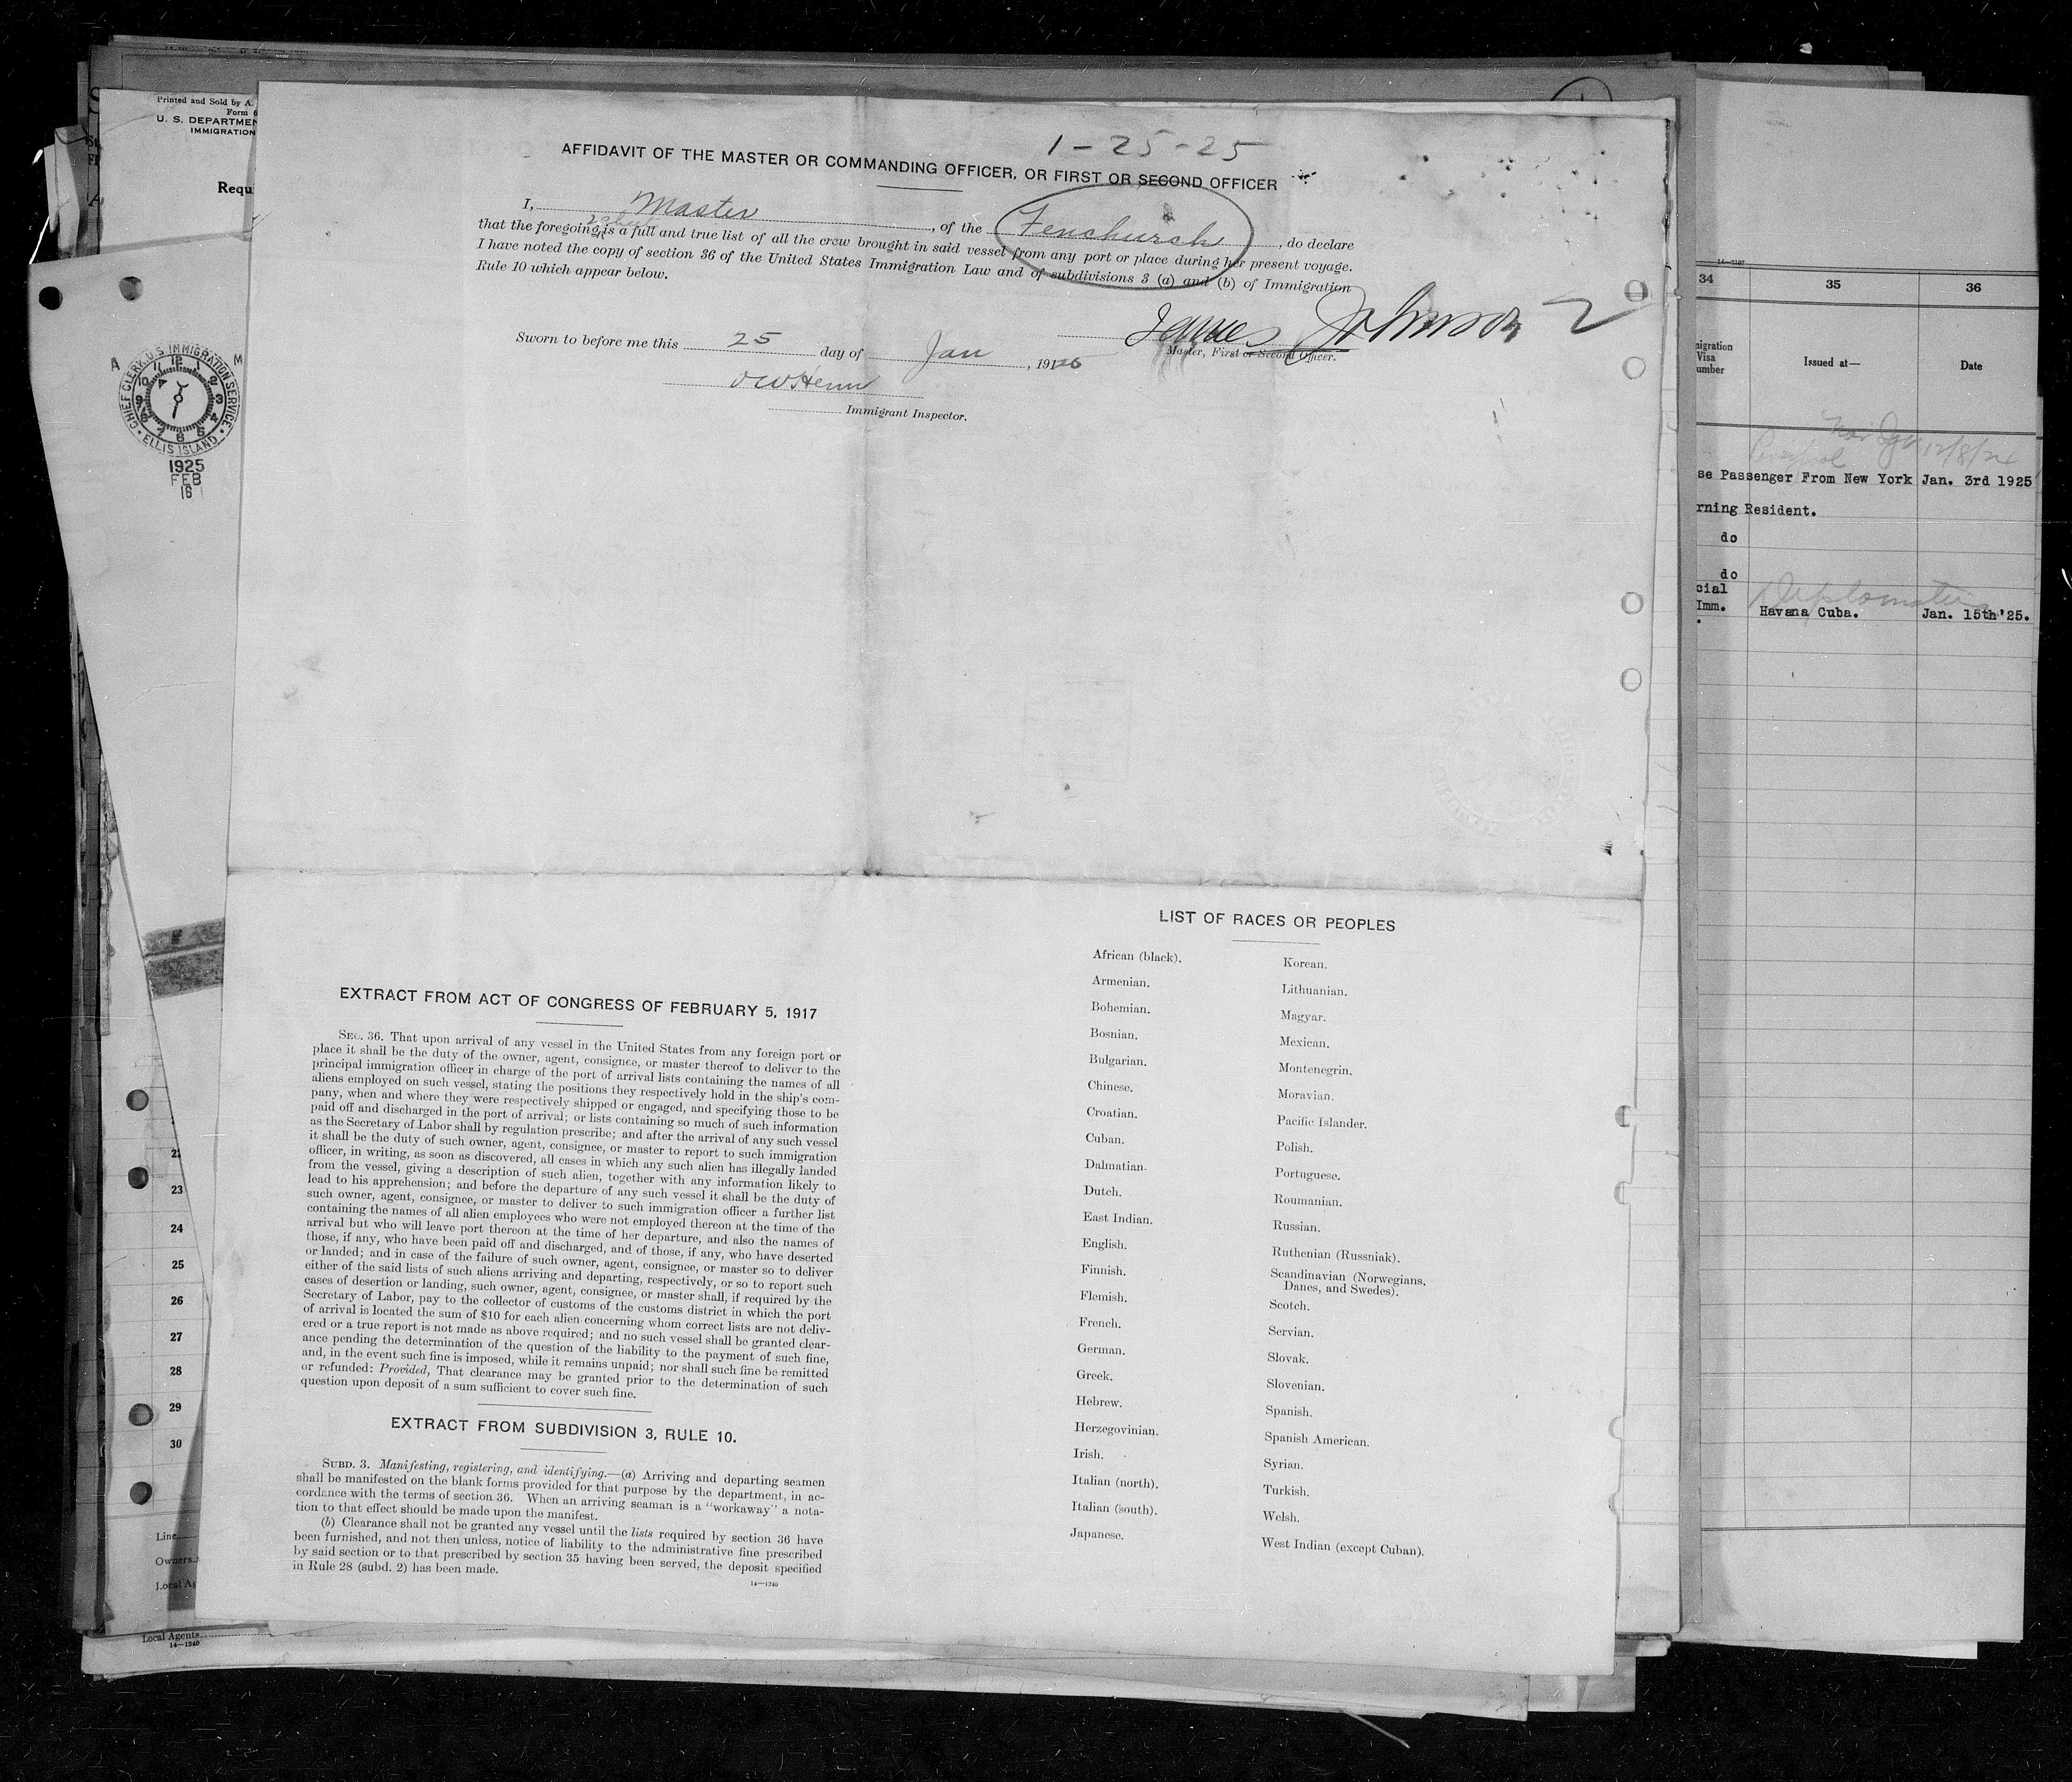 Printed and Sold by A.
Form 6
U. S. DEPARTMEN
IMMIGRATION
Requi
CHIEF CLERK U.S. IMMIGRATION SERVICE
ELLIS ISLAND
A M
1925
FEB
16
23
24
25
26
27
28
29
30
Line
Owners
Local Ag
Local Agents
14—1240
1-25-25
AFFIDAVIT OF THE MASTER OR COMMANDING OFFICER, OR FIRST OR SECOND OFFICER
I, Master, of the Fenchurch, do declare
that the foregoing is a full and true list of all the crew brought in said vessel from any port or place during her present voyage.
I have noted the copy of section 36 of the United States Immigration Law and of subdivisions 3 (a) and (b) of Immigration
Rule 10 which appear below.
James Johnson
Master, First or Second Officer.
Sworn to before me this 25 day of Jan, 1925
Immigrant Inspector.
EXTRACT FROM ACT OF CONGRESS OF FEBRUARY 5, 1917
SEC. 36. That upon arrival of any vessel in the United States from any foreign port or
place it shall be the duty of the owner, agent, consignee, or master thereof to deliver to the
principal immigration officer in charge of the port of arrival lists containing the names of all
aliens employed on such vessel, stating the positions they respectively hold in the ship's com-
pany, when and where they were respectively shipped or engaged, and specifying those to be
paid off and discharged in the port of arrival; or lists containing so much of such information
as the Secretary of Labor shall by regulation prescribe; and after the arrival of any such vessel
it shall be the duty of such owner, agent, consignee, or master to report to such immigration
officer, in writing, as soon as discovered, all cases in which any such alien has illegally landed
from the vessel, giving a description of such alien, together with any information likely to
lead to his apprehension; and before the departure of any such vessel it shall be the duty of
such owner, agent, consignee, or master to deliver to such immigration officer a further list
containing the names of all alien employees who were not employed thereon at the time of the
arrival but who will leave port thereon at the time of her departure, and also the names of
those, if any, who have been paid off and discharged, and of those, if any, who have deserted
or landed; and in case of the failure of such owner, agent, consignee, or master so to deliver
either of the said lists of such aliens arriving and departing, respectively, or so to report such
cases of desertion or landing, such owner, agent, consignee, or master shall, if required by the
Secretary of Labor, pay to the collector of customs of the customs district in which the port
of arrival is located the sum of $10 for each alien concerning whom correct lists are not deliv-
ered or a true report is not made as above required; and no such vessel shall be granted clear-
ance pending the determination of the question of the liability to the payment of such fine,
and, in the event such fine is imposed, while it remains unpaid; nor shall such fine be remitted
or refunded: Provided, That clearance may be granted prior to the determination of such
question upon deposit of a sum sufficient to cover such fine.
EXTRACT FROM SUBDIVISION 3, RULE 10.
SUBD. 3. Manifesting, registering, and identifying.—(a) Arriving and departing seamen
shall be manifested on the blank forms provided for that purpose by the department, in ac-
cordance with the terms of section 36. When an arriving seaman is a "workaway" a nota-
tion to that effect should be made upon the manifest.
(b) Clearance shall not be granted any vessel until the lists required by section 36 have
been furnished, and not then unless, notice of liability to the administrative fine prescribed
by said section or to that prescribed by section 35 having been served, the deposit specified
in Rule 28 (subd. 2) has been made.
14—1240
LIST OF RACES OR PEOPLES
African (black).
Armenian.
Bohemian.
Bosnian.
Bulgarian.
Chinese.
Croatian.
Cuban.
Dalmatian.
Dutch.
East Indian.
English.
Finnish.
Flemish.
French.
German.
Greek.
Hebrew.
Herzegovinian.
Irish.
Italian (north).
Italian (south).
Japanese.
Korean.
Lithuanian.
Magyar.
Mexican.
Montenegrin.
Moravian.
Pacific Islander.
Polish.
Portuguese.
Roumanian.
Russian.
Ruthenian (Russniak).
Scandinavian (Norwegians,
Danes, and Swedes).
Scotch.
Servian.
Slovak.
Slovenian.
Spanish.
Spanish American.
Syrian.
Turkish.
Welsh.
West Indian (except Cuban).
34 35 36
migration
Visa
umber
Issued at—
Date
12/8/24
se Passenger From New York Jan. 3rd 1925
rning Resident.
do
do
cial
Imm. Havana Cuba. Jan. 15th'25.